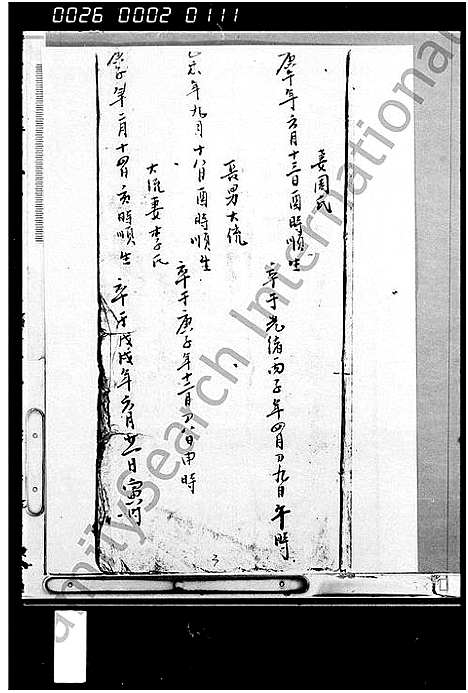 0026 0002 0111
妻周氏
庚午年六月十三日酉時順生 卒于光緒丙子年四月初九日午時
長男大侃
乙亥年九月十八日酉時順生 卒于庚子年十二月初八日申時
大侃妻李氏
年二月十四日亥時順生 卒于戊戌年六月廿一日寅時
FamilySearch International